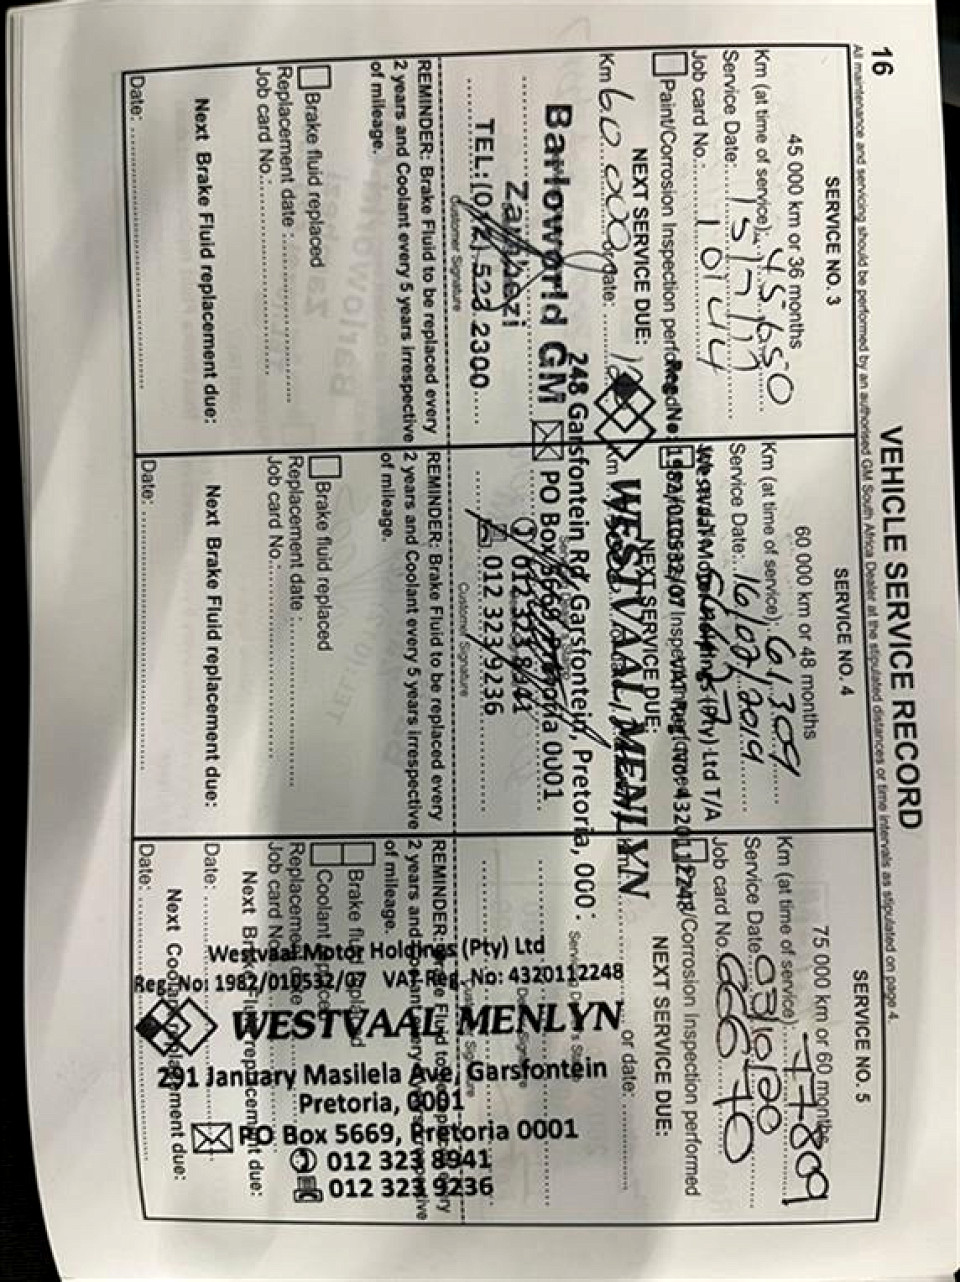 16
VEHICLE SERVICE RECORD
All maintenance and servicing should be performed by an authorised GM South Africa Dealer at the stipulated distances or time intervals as stipulated on page 4.
SERVICE NO. 3
45 000 km or 36 months
Km (at time of service): 45650
Service Date:
Job card No.: 10144
Paint/Corrosion Inspection performed
NEXT SERVICE DUE:
Km 60 000 or date:
Barloworld GM
Zambezi
TEL: (012) 523 2300
Customer Signature
REMINDER: Brake Fluid to be replaced every
2 years and Coolant every 5 years irrespective
of mileage.
Brake fluid replaced
Replacement date :
Job card No.:
Next Brake Fluid replacement due:
Date:
SERVICE NO. 4
60 000 km or 48 months
Km (at time of service): 61309
Service Date: 16/02/2019
Westvaal Motor Holdings (Pty) Ltd T/A
Reg. No: 1982/010532/07 VAT Reg. No: 4320112248
NEXT SERVICE DUE:
WESTVAAL MENLYN
248 Garsfontein Rd, Garsfontein, Pretoria, 000
PO Box 5669, Pretoria 0001
012 323 8941
012 323 9236
Customer Signature
REMINDER: Brake Fluid to be replaced every
2 years and Coolant every 5 years irrespective
of mileage.
Brake fluid replaced
Replacement date :
Job card No.:
Next Brake Fluid replacement due:
Date:
SERVICE NO. 5
75 000 km or 60 months
Km (at time of service): 77809
Service Date: 03/10/20
Job card No. 66670
Paint/Corrosion Inspection performed
NEXT SERVICE DUE:
or date:
REMINDER: Brake Fluid to be replaced every
2 years and Coolant every 5 years irrespective
of mileage.
Brake fluid replaced
Coolant replaced
Replacement date
Job card No.
Next Brake Fluid replacement due:
Date:
Next Coolant replacement due:
Date:
Westvaal Motor Holdings (Pty) Ltd
Reg. No: 1982/010532/07 VAT Reg. No: 4320112248
WESTVAAL MENLYN
291 January Masilela Ave, Garsfontein
Pretoria, 0001
PO Box 5669, Pretoria 0001
012 323 8941
012 323 9236